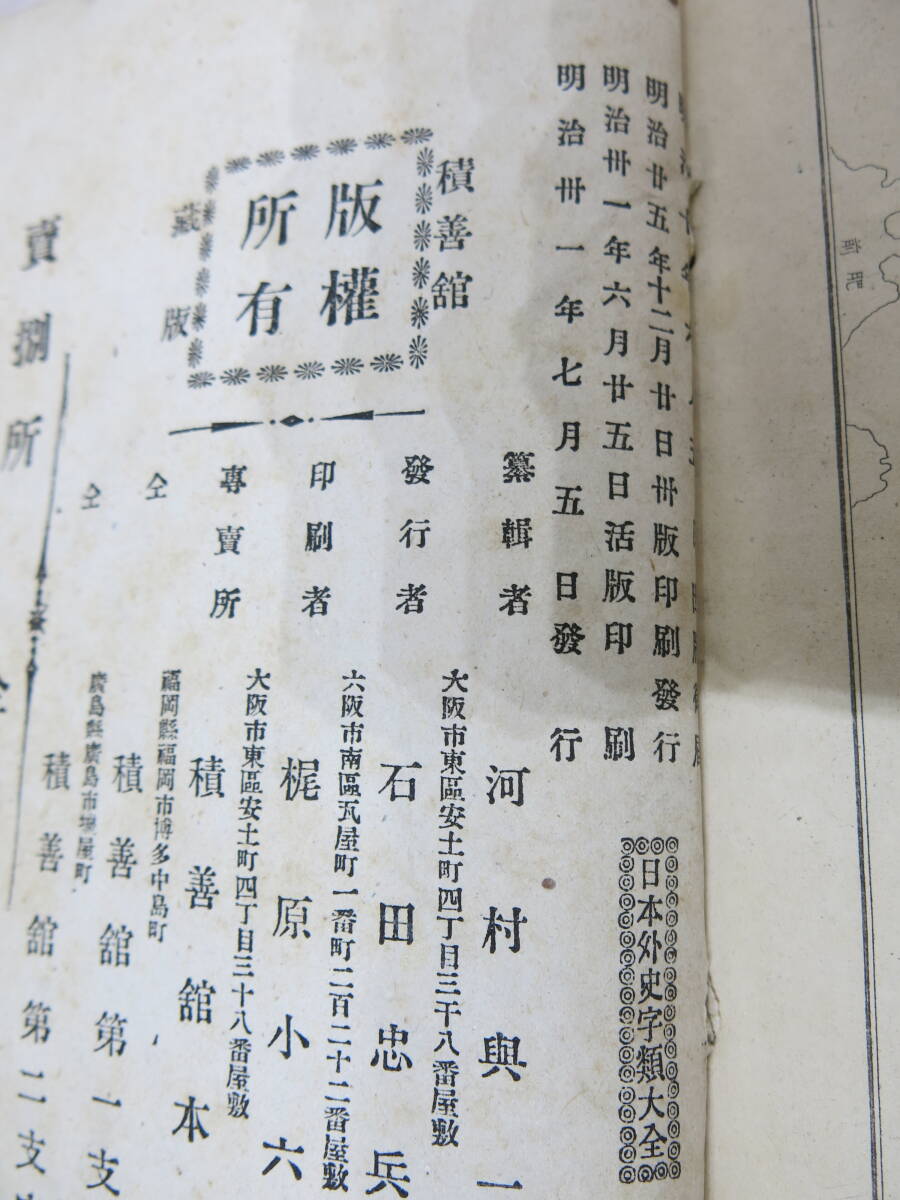 明治廿五年十二月廿日卅版印刷發行
明治卅一年六月廿五日活版印刷
明治卅一年七月五日發行
日本外史字類大全
積善舘
版權
所有
藏版
纂輯者
河村與一
發行者
大阪市東區安土町四丁目三十八番屋敷
石田忠兵
印刷者
大阪市南區瓦屋町一番町二百二十二番屋敷
梶原小六
專賣所
大阪市東區安土町四丁目三十八番屋敷
積善舘本
仝
福岡縣福岡市博多中島町
積善舘第一支
仝
廣島縣廣島市塲屋町
積善舘第二支
賣捌所